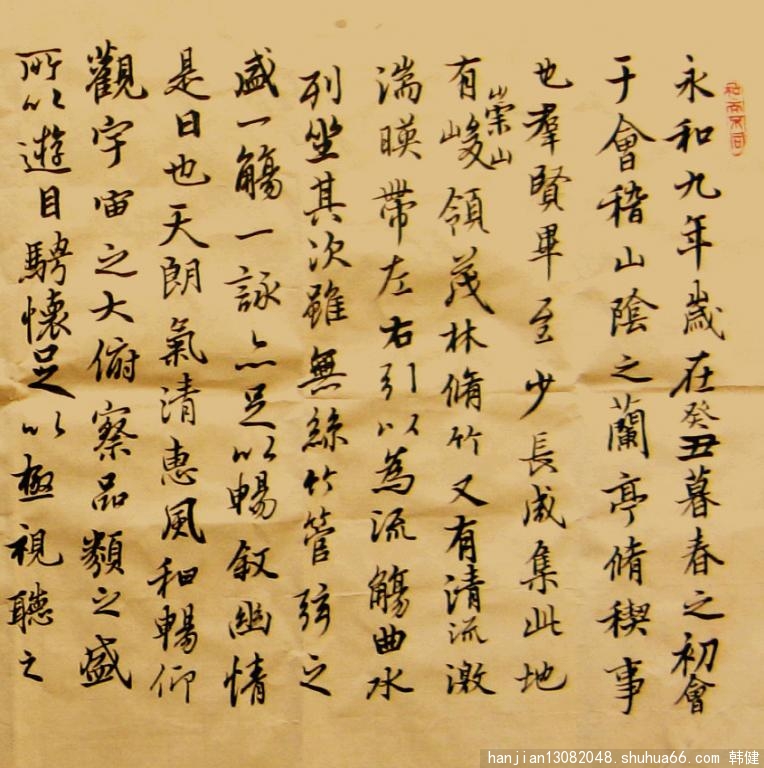 永和九年歲在癸丑暮春之初會
于會稽山陰之蘭亭脩稧事
也羣賢畢至少長咸集此地
有崇山峻領茂林脩竹又有清流激
湍暎帶左右引以為流觴曲水
列坐其次雖無絲竹管弦之
盛一觴一詠亦足以暢敘幽情
是日也天朗氣清惠風和暢仰
觀宇宙之大俯察品類之盛
所以遊目騁懷足以極視聽之
hanjian13082048.shuhua66.com 韩健